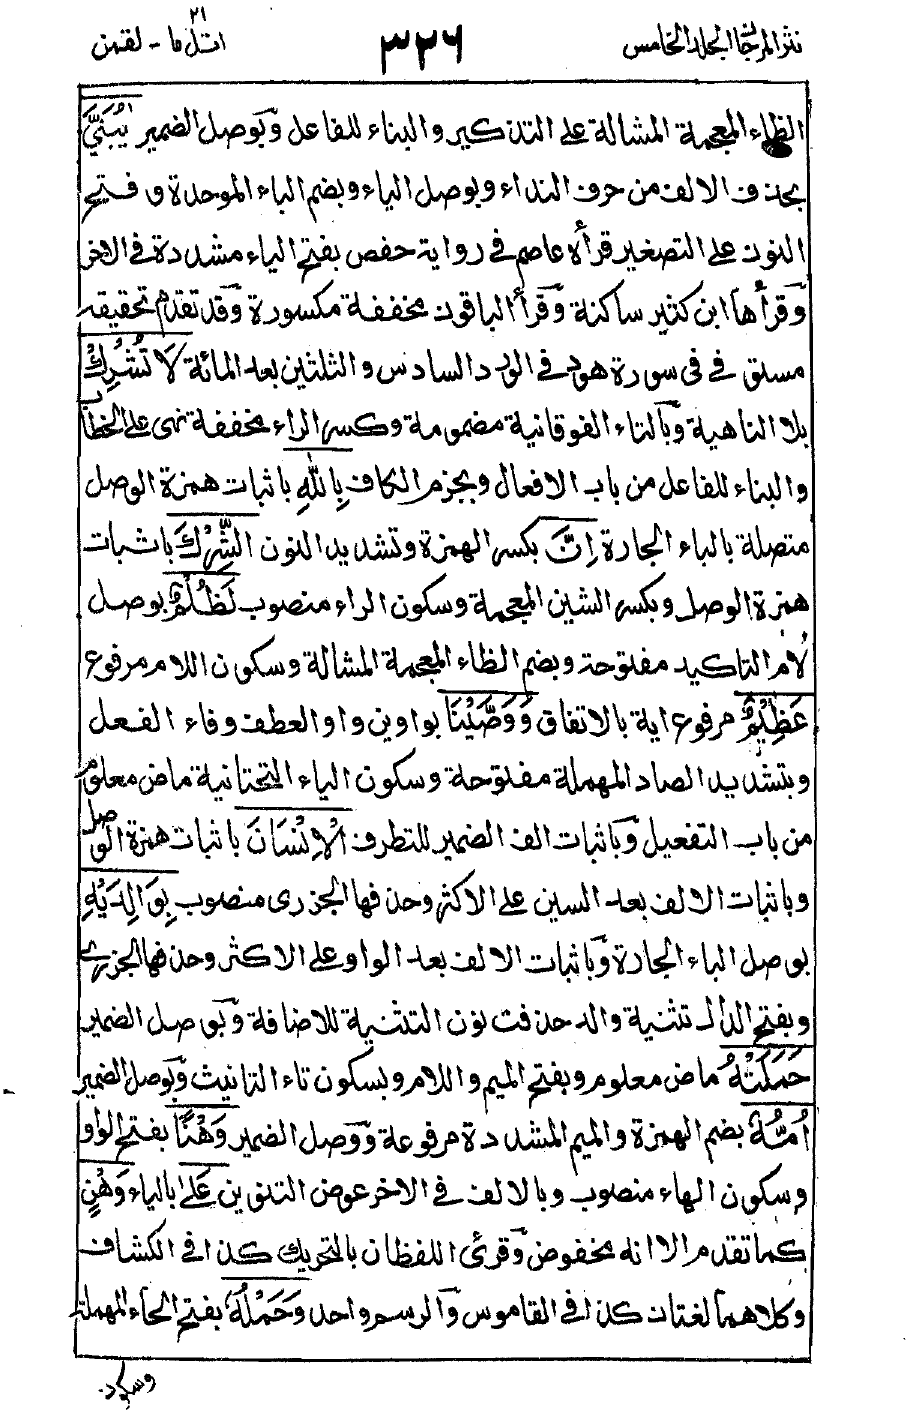 نثر المرجان المجلد الخامس ٣٢٦ اتل ما - لقمن ٢١
الظاء المعجمة المشالة على التذكير والبناء للفاعل وبوصل الضمير يٰبُنَيَّ
بحذف الالف من حرف النداء وبوصل الياء وبضم الباء الموحدة و فتح
النون على التصغير قرأه عاصم في رواية حفص بفتح الياء مشددة في الاخر
وقرأها ابن كثير ساكنة وقرأ الباقون مخففة مكسورة وقد تقدم تحقيقه
مستق في فى سورة هود في الورد السادس والثلثين بعد المائة لَا تُشْرِكْ
بلا الناهية وبالتاء الفوقانية مضمومة وكسر الراء مخففة نهى على الخطاب
والبناء للفاعل من باب الافعال وبجزم الكاف بِاللّٰهِ باثبات همزة الوصل
متصلة بالباء الجارة اِنَّ بكسر الهمزة وتشديد النون الشِّرْكَ باثبات
همزة الوصل وبكسر الشين المعجمة وسكون الراء منصوب لَظُلْمٌ بوصل
لام التاكيد مفتوحة وبضم الظاء المعجمة المشالة وسكون اللام مرفوع
عَظِيْمٌ مرفوع اية بالاتفاق وَوَصَّيْنَا بواوين واو العطف وفاء الفعل
وبتشديد الصاد المهملة مفتوحة وسكون الياء التحتانية ماض معلوم
من باب التفعيل وباثبات الف الضمير للتطرف الْاِنْسَانَ باثبات همزة الوصل
وباثبات الالف بعد السين على الاكثر وحذفها الجزرى منصوب بِوَالِدَيْهِ
بوصل الباء الجارة وباثبات الالف بعد الواو على الاكثر وحذفها الجزرى
وبفتح الدال تثنية والد حذفت نون التثنية للاضافة وبوصل الضمير
حَمَلَتْهُ ماض معلوم وبفتح الميم واللام وبسكون تاء التانيث وبوصل الضمير
اُمُّهٗ بضم الهمزة والميم المشددة مرفوعة ووصل الضمير وَهْنًا بفتح الواو
وسكون الهاء منصوب وبالالف في الاخر عوض التنوين عَلٰى بالياء وَهْنٍ
كما تقدم الا انه مخفوض وقرئ اللفظان بالتحريك كذا في الكشاف
وكلاهما لغتان كذا في القاموس والرسم واحد وَحَمْلُهٗ بفتح الحاء المهملة
وسكون